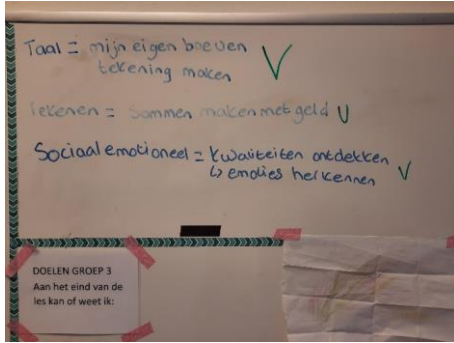 Taal = mijn eigen boeven
tekening maken
Rekenen = Sommen maken met geld
Sociaal emotioneel = Kwaliteiten ontdekken
↳ emoties herkennen
DOELEN GROEP 3
Aan het eind van de
les kan of weet ik: